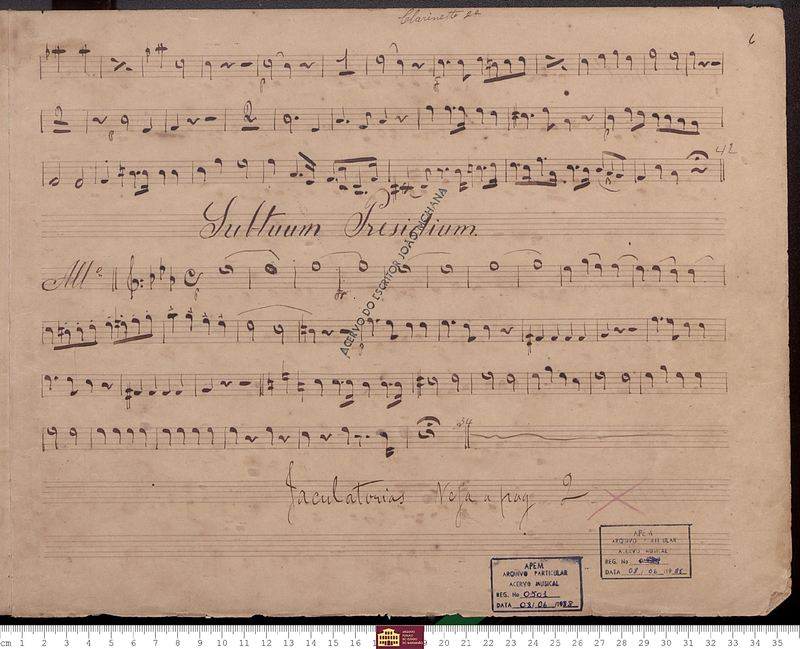 Clarinette 2º
6
42
Subtuum Presidium.
All.º
ACERVO DO ESCRITOR JOÃO MOHANA
34
Jaculatorias Veja a pag 2
APEM
ARQUIVO PARTICULAR
ACERVO MUSICAL
REG. No
DATA 08 / 06 /1988
APEM
ARQUIVO PARTICULAR
ACERVO MUSICAL
REG. No 0501
DATA 08 / 06 /1988
cm 1 2 3 4 5 6 7 8 9 10 11 12 13 14 15 16 19 20 21 22 23 24 25 26 27 28 29 30 31 32 33 34 35